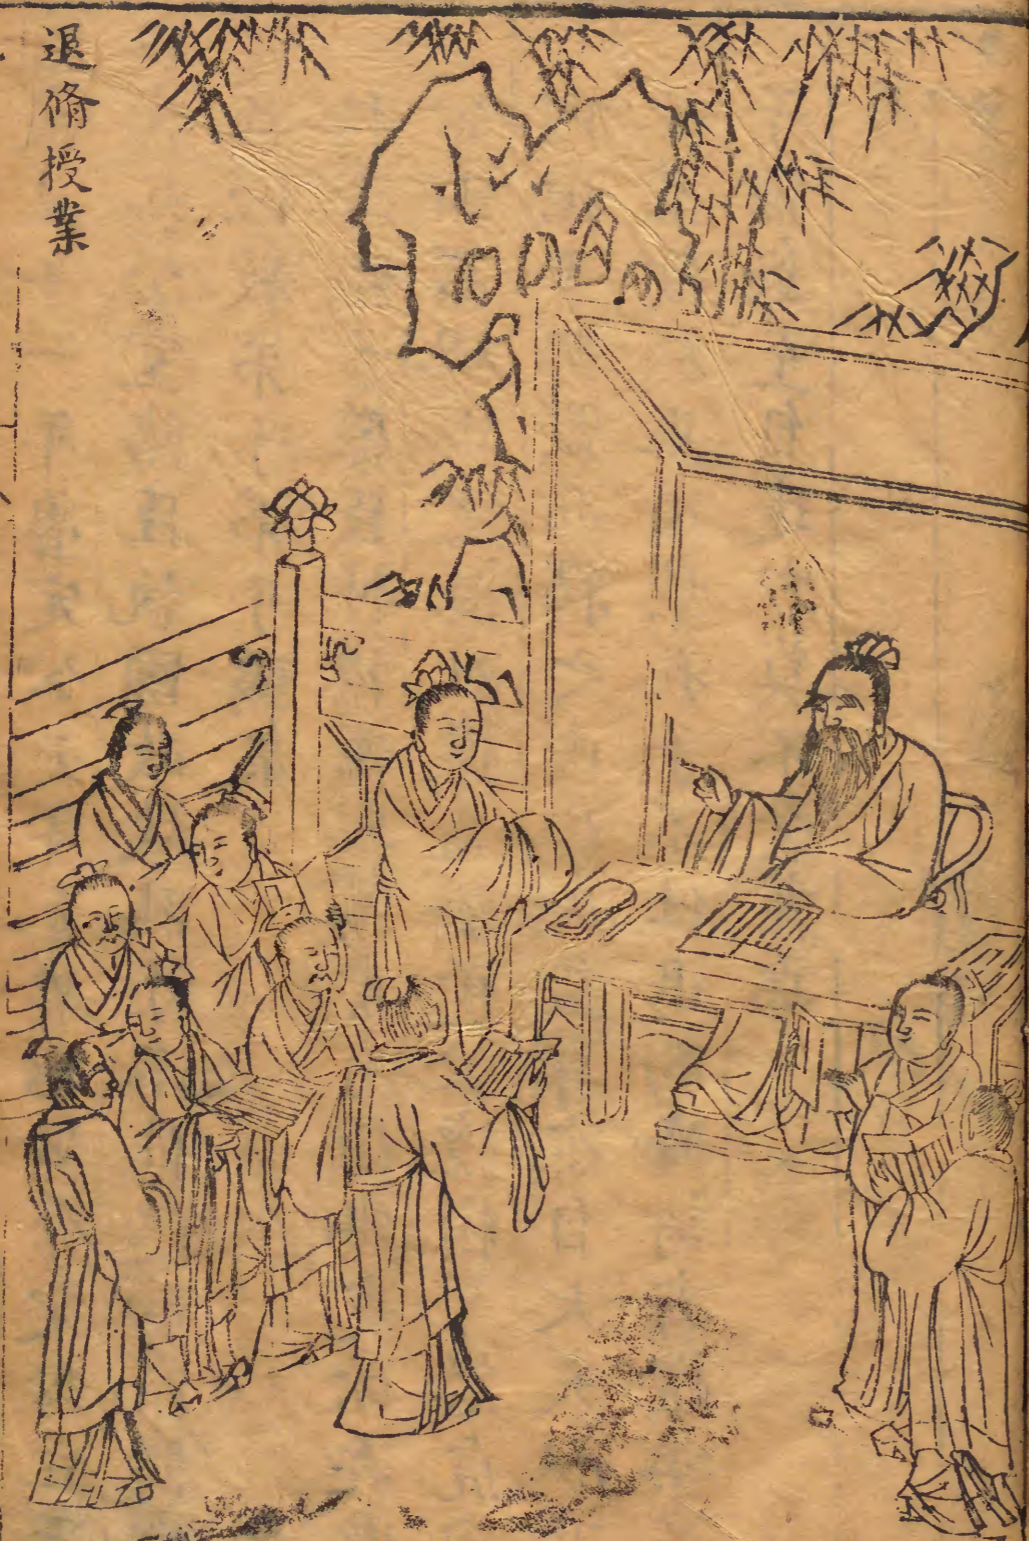 退脩授業